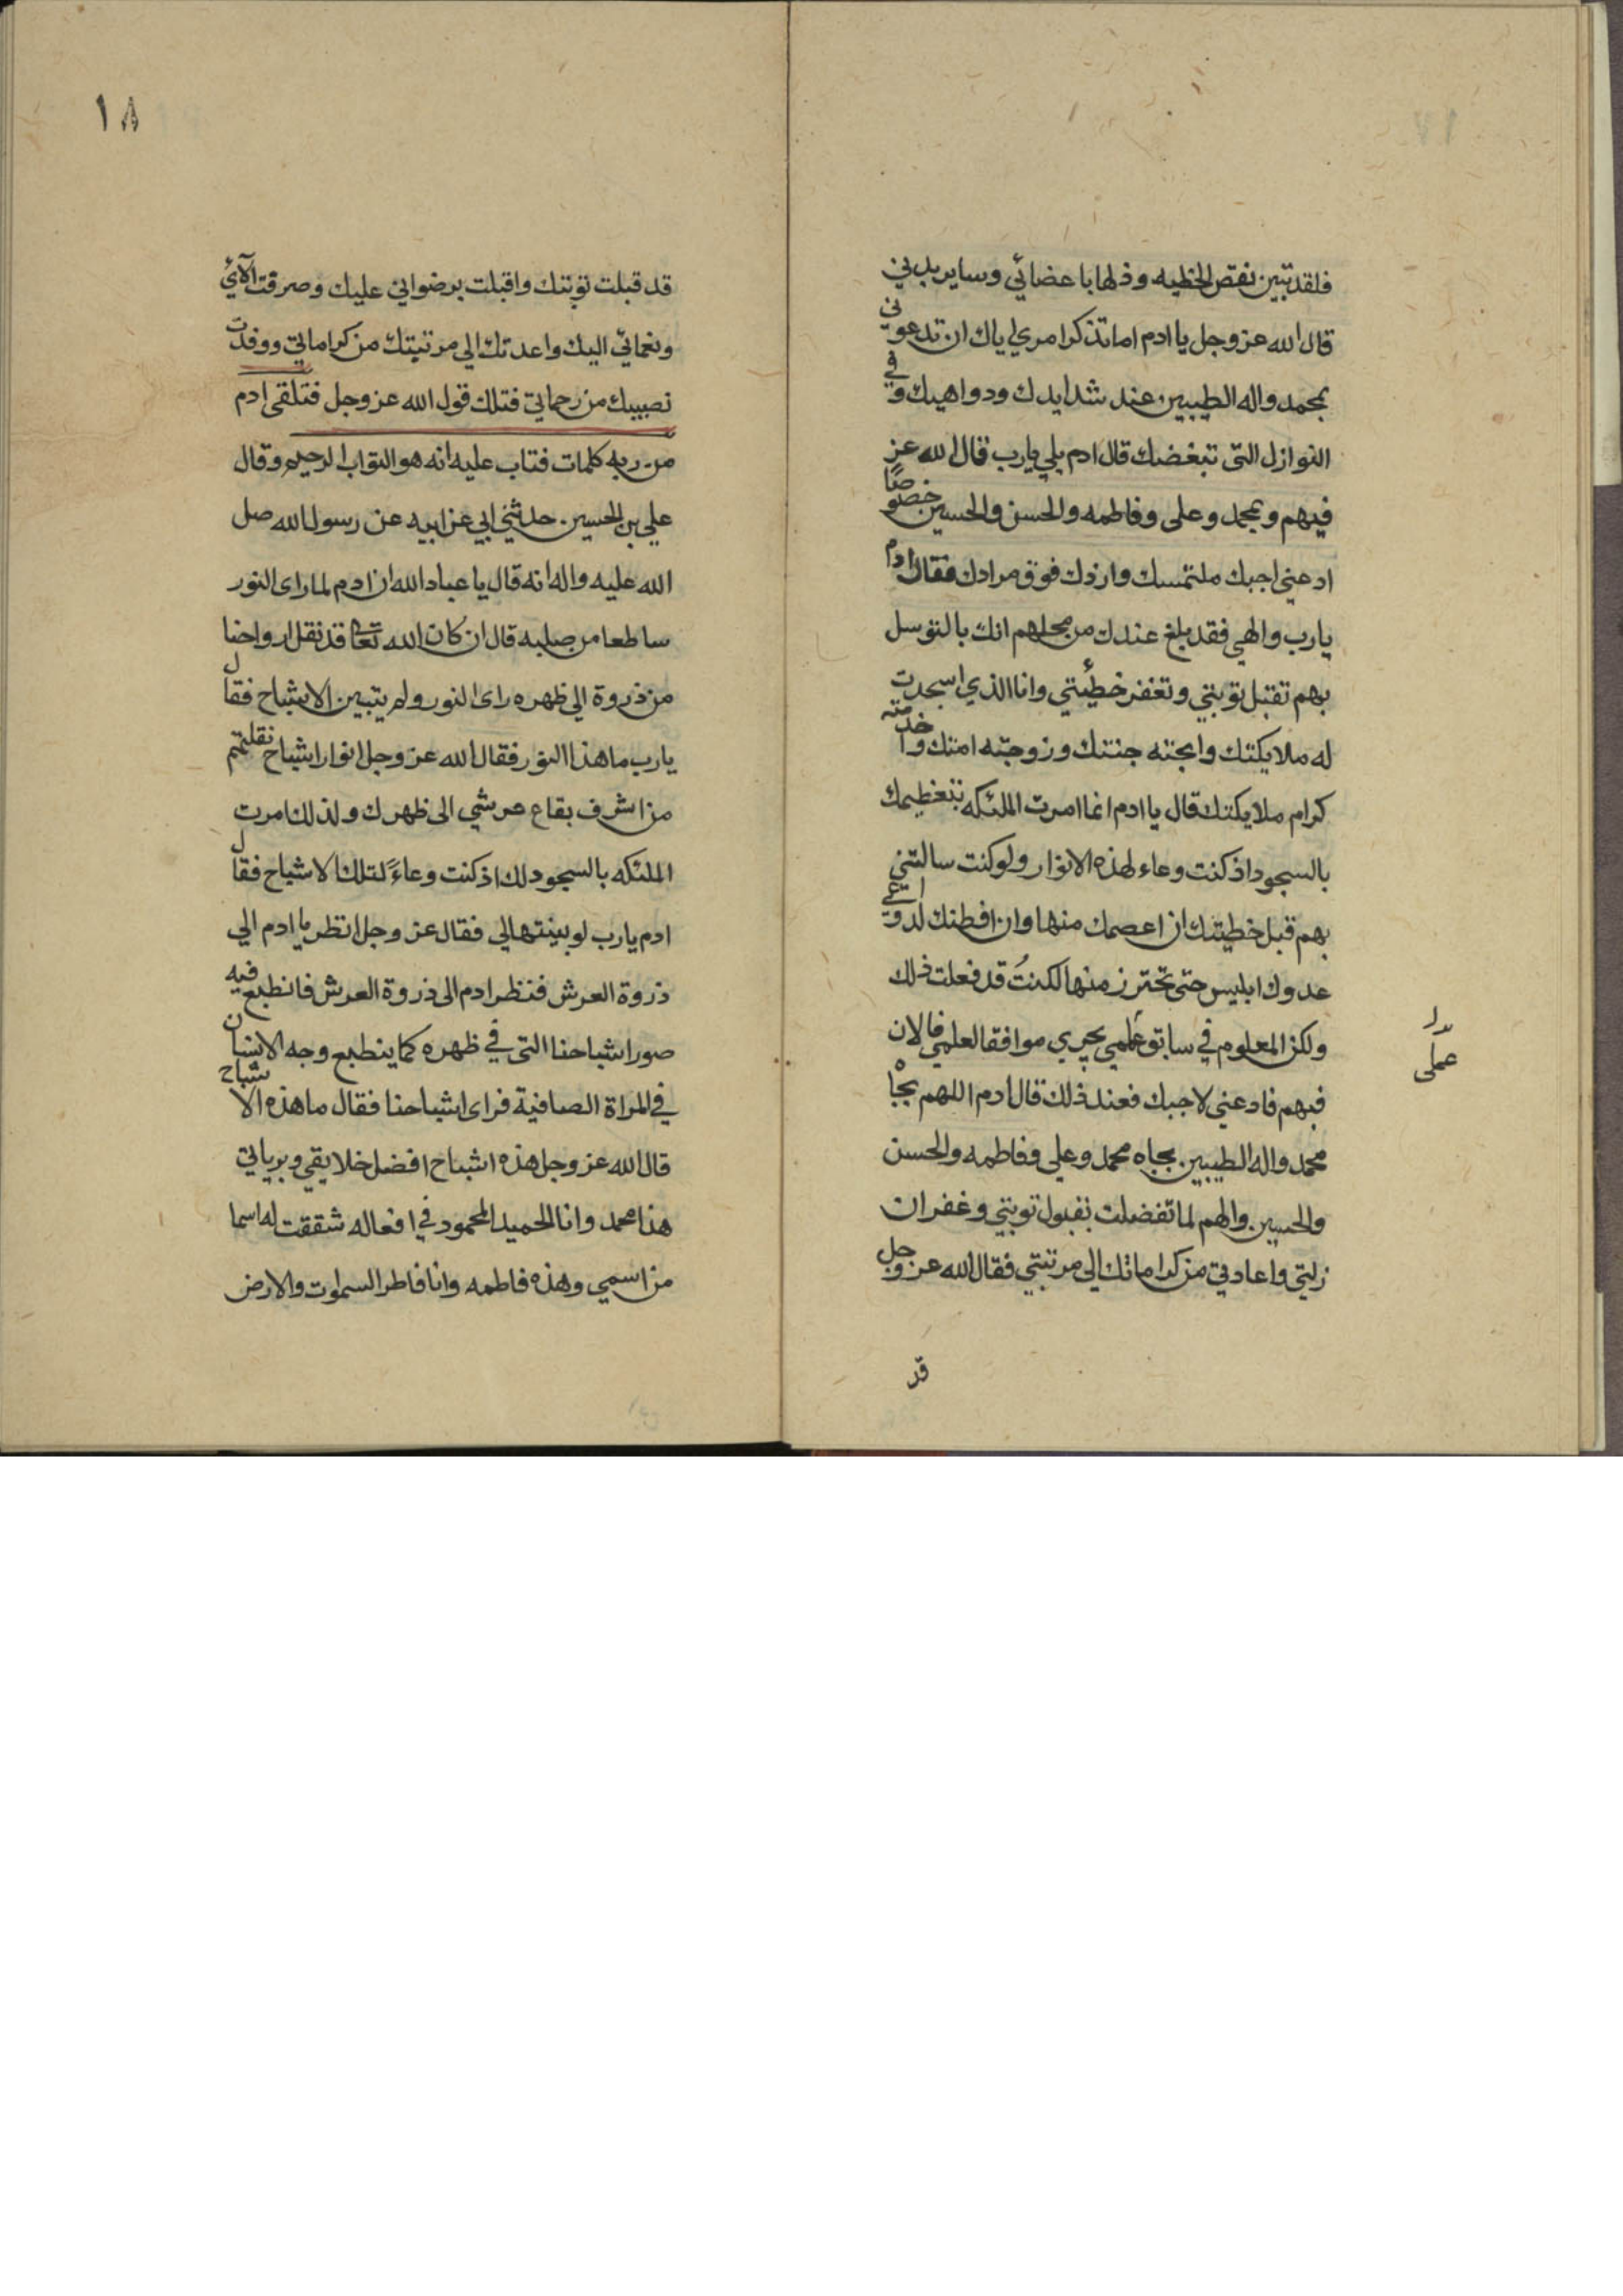 فلقد تبين نقص الخطيه وذلها باعضائي وساير بدني
قال الله عز وجل يا ادم اما تذكر امري اياك ان تدعوني
بمحمد واله الطيبين عند شدايدك ودواهيك وفي
النوازل التى تبغضك قال ادم بلي يارب قال الله عز
فبهم وبمحمد وعلى وفاطمه والحسن والحسين خصوصًا
ادعني اجبك ملتمسك وازدك فوق مرادك فقال ادم
يارب والهي فقد بلغ عندك من محلهم انك بالتوسل
بهم تقبل توبتي وتغفر خطئتي وانا الذي اسجدت
له ملايكتك وابحته جنتك وزوجته امتك واخدمته
كرام ملايكتك قال يا ادم انما امرت الملئكه بتعظيمك
بالسجود اذ كنت وعاء لهذه الانوار ولو كنت سالتني
بهم قبل خطيتك ان اعصمك منها وان افطنك لدواعي
عدوك ابليس حتى تحترز منها لكنتُ قد فعلت ذلك
ولكن المعلوم في سابق علمي يجري موافقا لعلمي فالان
فبهم فادعني لاجبك فعند ذلك قال ادم اللهم بجاه
محمد واله الطيبين بجاه محمد وعلي وفاطمه والحسن
والحسين والهم لما تفضلت بقبول توبتي وغفران
زلتي واعادتي من كراماتك الي مرتبتي فقال الله عز وجل
قد
عملى
١٨
قد قبلت توبتك واقبلت برضواني عليك وصرفت آلائي
ونعمائي اليك واعدتك الي مرتبتك من كراماتي ووفرت
نصيبك من رحماتي فتلك قول الله عز وجل فتلقى ادم
من ربه كلمات فتاب عليه انه هو التواب الرحيم وقال
علي بن الحسين حدثني ابي عن ابيه عن رسول الله صل
الله عليه واله انه قال يا عباد الله ان ادم لما راى النور
ساطعا من صلبه قال ان كان الله تعا قد نقل ارواحنا
من ذروة الي ظهره راى النور ولم يتبين الاشباح فقال
يارب ما هذا النور فقال الله عز وجل انوار اشباح نقلتهم
من اشرف بقاع عرشي الى ظهرك ولذلك امرت
الملئكه بالسجود لك اذ كنت وعاءً لتلك الاشباح فقال
ادم يارب لو بينتها لي فقال عز وجل انظر يا ادم الي
ذروة العرش فنظر ادم الى ذروة العرش فانطبع فيه
صور اشباحنا التى في ظهره كما ينطبع وجه الانسان
في المراة الصافية فراى اشباحنا فقال ما هذه الاشباح
قال الله عز وجل هذه اشباح افضل خلايقي وبرياتي
هذا محمد وانا الحميد المحمود في افعاله شققت له اسما
من اسمي وهذه فاطمه وانا فاطر السموات والارض